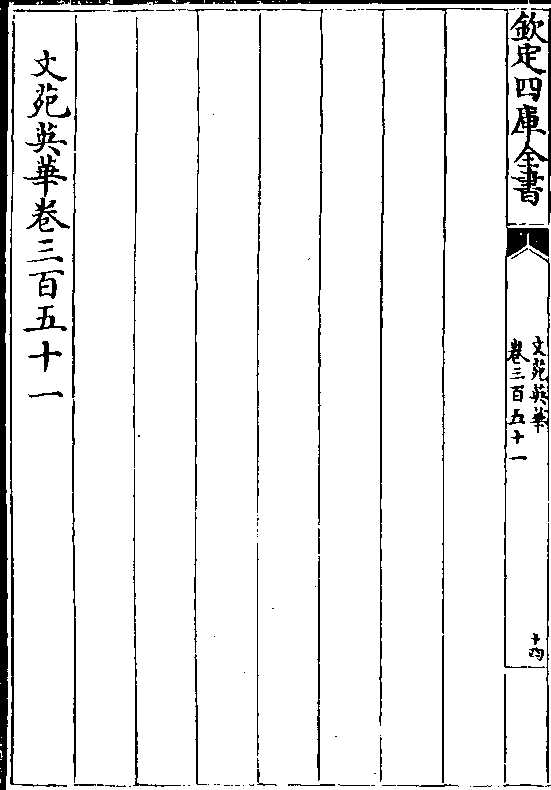 欽定四庫全書
文苑英華
卷三百五十一
十四
文苑英華卷三百五十一